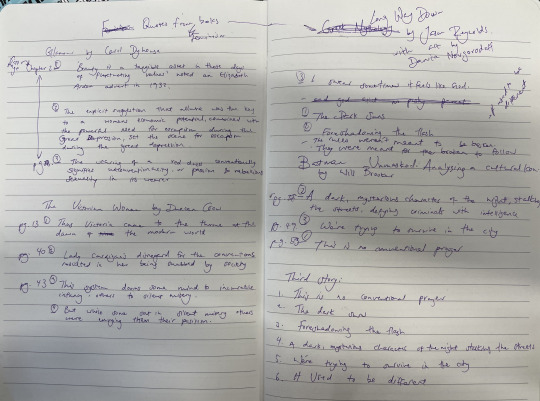 Quotes from books
Feminism
Glamour by Carol Dyhouse
Chapter
Beauty is a tangible asset in these days
of fluctuating values' noted an Elizabeth
Arden advert in 1932.
The explicit suggestion that allure was the key
to a womens economic potential, combined with
the powerful need for escapism during the
Great Depression, set the scene for escapism
during the great depression
The wearing of a red dress conventionally
signifies unconventionality, or passion to rebellious
sexuality in its wearer
The Victorian Women by Duncan Crow
pg. 13 ① Thus Victoria came to the throne at the
dawn of the modern world
pg. 40 ② Lady Cardigan's disregard for the conventions
resulted in her being snubbed by society
pg. 43 ③ This system drove some mind to incurable
others to silent misery.
But while some sat in silent misery others
were enjoying them their position.
Long Way Down
by Jason Reynolds
with art by
Danica Novgorodoff
③ I swear sometimes it feels like God
① The Dark Suns
② foreshadowing the flash
- The rules weren't meant to be broken
- They were meant for the broken to follow
Batman Unmasked: Analysing a Cultural Icon
by Will Brooker
A dark, mysterious character of the night, stalking
the streets, defying criminals with intelligence
pg. 49 ③ We're trying to survive in the city
This is no conventional prayer
Third story:
1. This is no conventional prayer
2. The dark suns
3. foreshadowing the flash
4. A dark, mysterious character of the night stalking the streets
5. We're trying to survive in the city
6. It used to be different